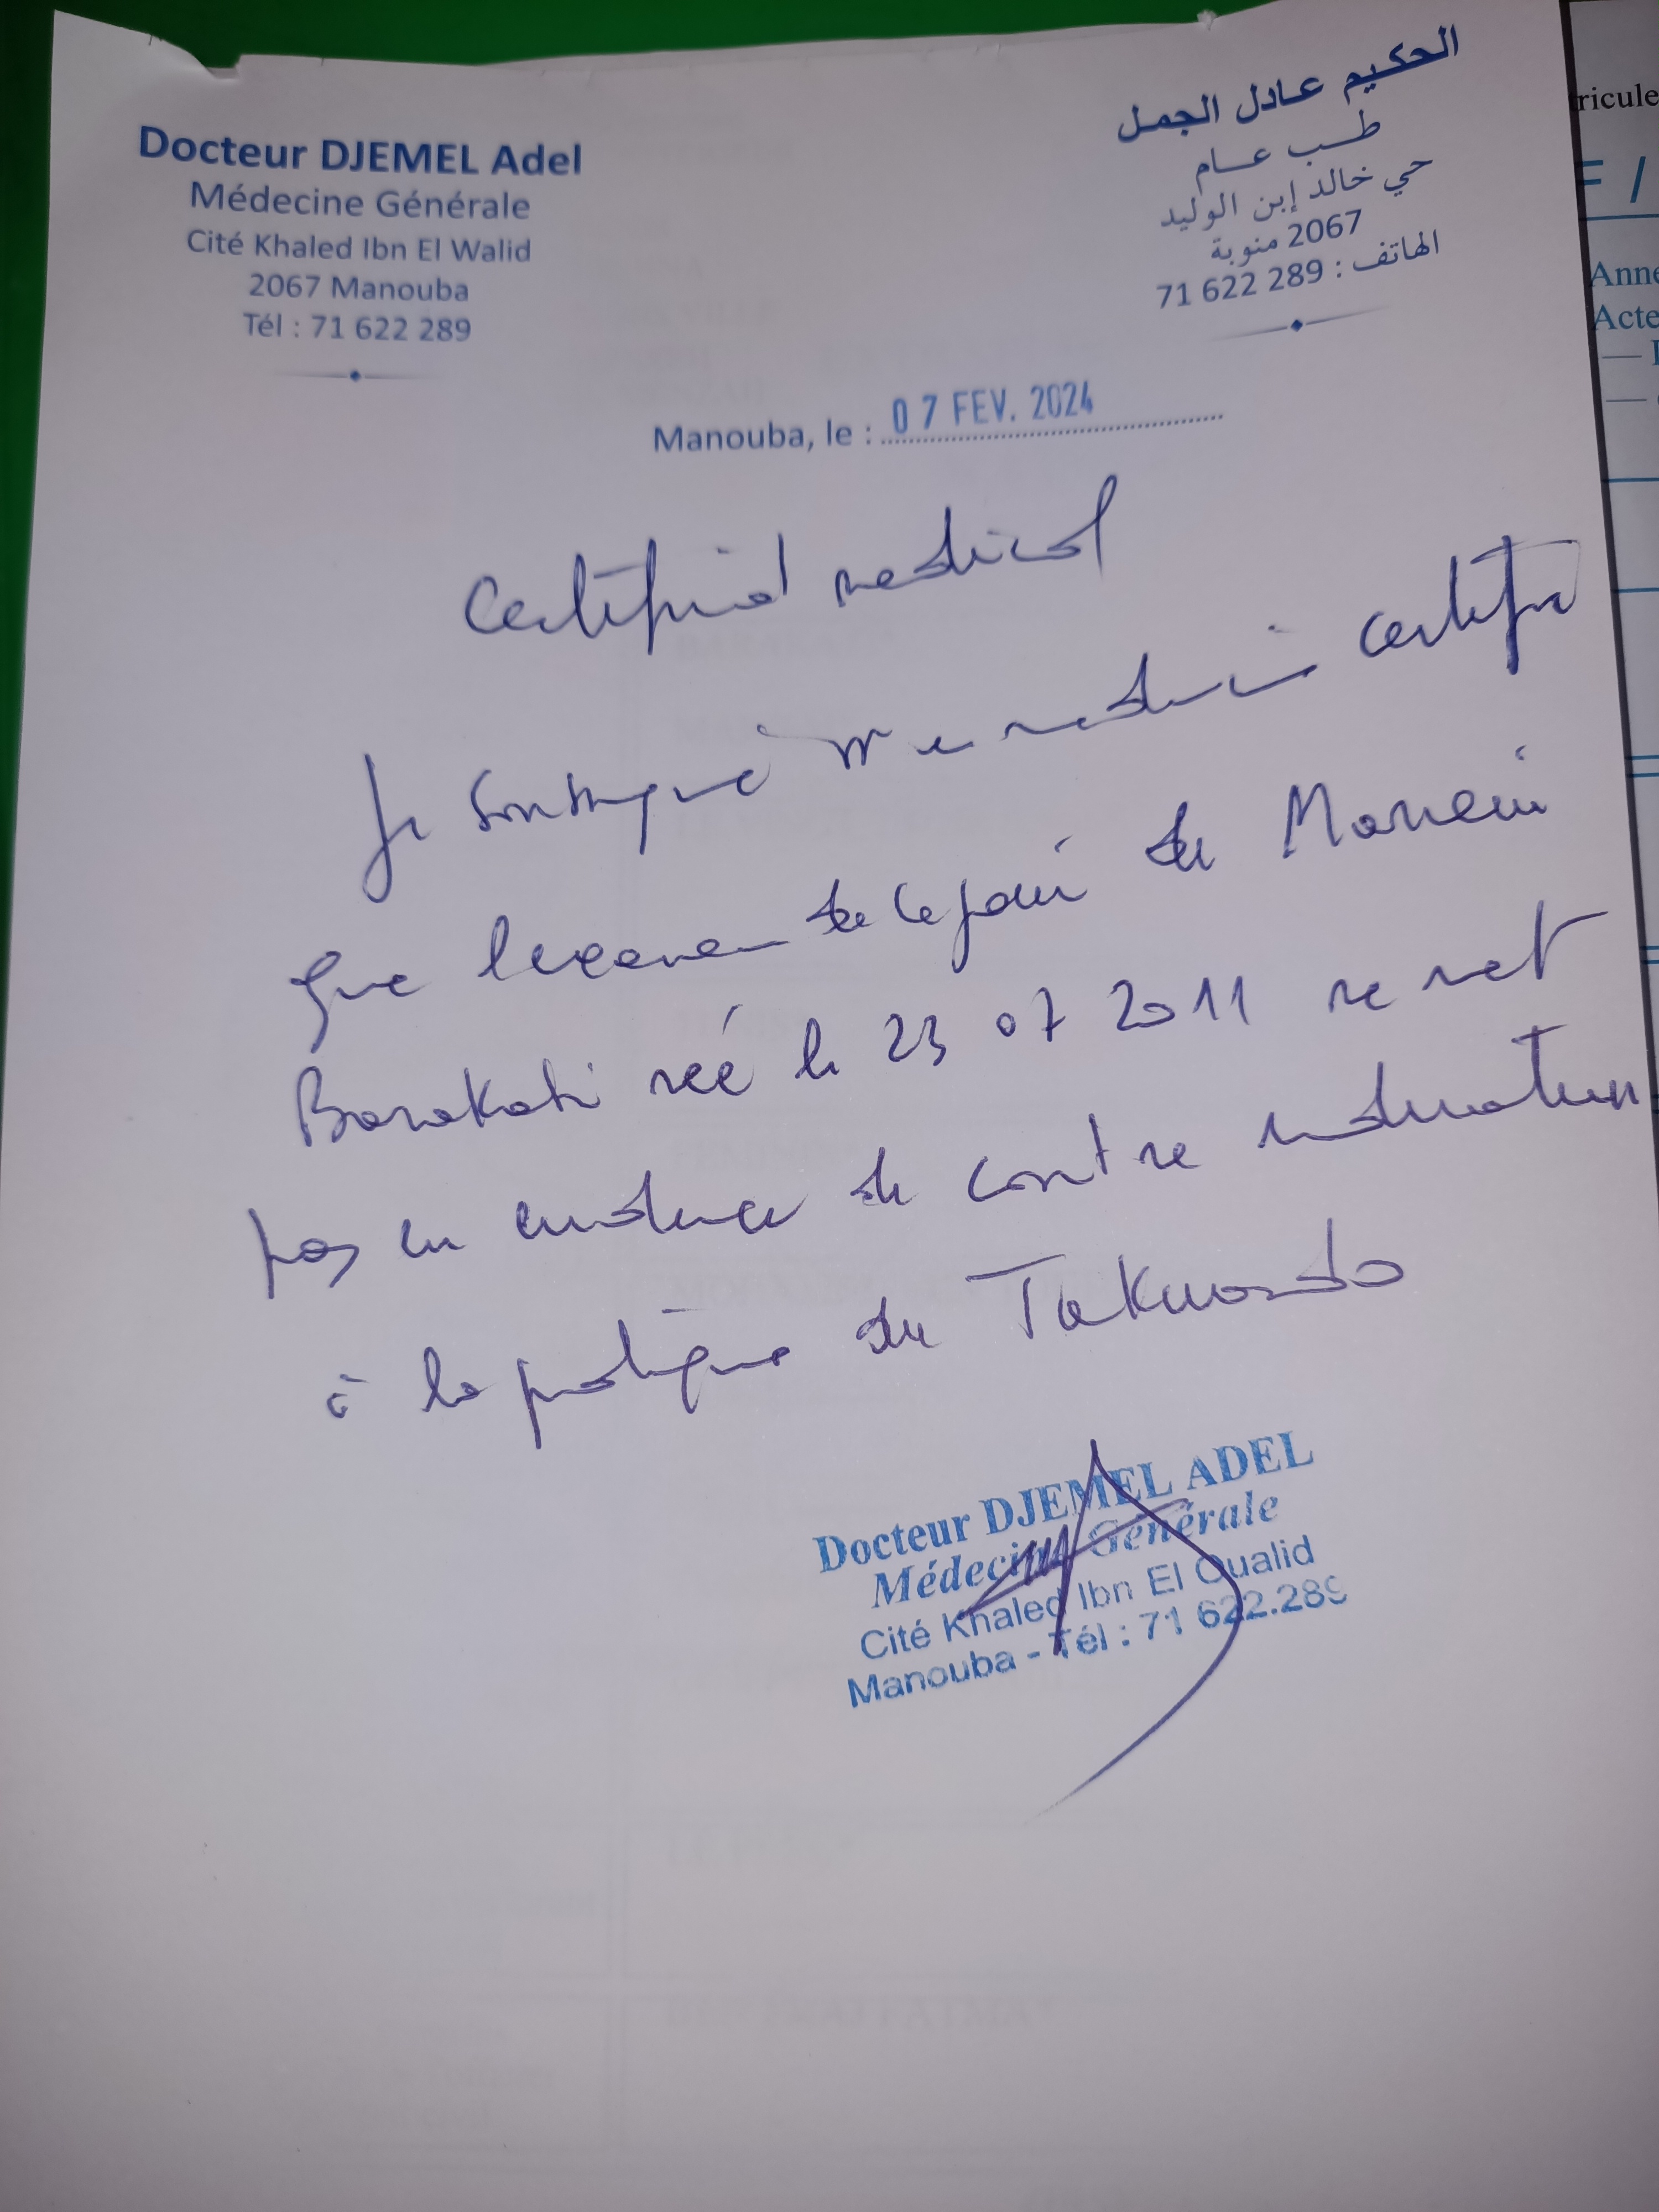 Docteur DJEMEL Adel
Médecine Générale
Cité Khaled Ibn El Walid
2067 Manouba
Tél : 71 622 289
الحكيم عادل الجمل
طب عام
حي خالد إبن الوليد
2067 منوبة
الهاتف : 289 622 71
Manouba, le : 07 FEV. 2024
Certificat medical
Je soussigné médecin certifie
que l'examen de ce jour de
Barakati née le 23 07 2011 ne met
pas en evidence de contre indication
à la pratique du Taekwondo
Docteur DJEMEL ADEL
Médecine Générale
Cité Khaled Ibn El Oualid
Manouba - Tél : 71 622.289
ricule
F /
Anne
Acte